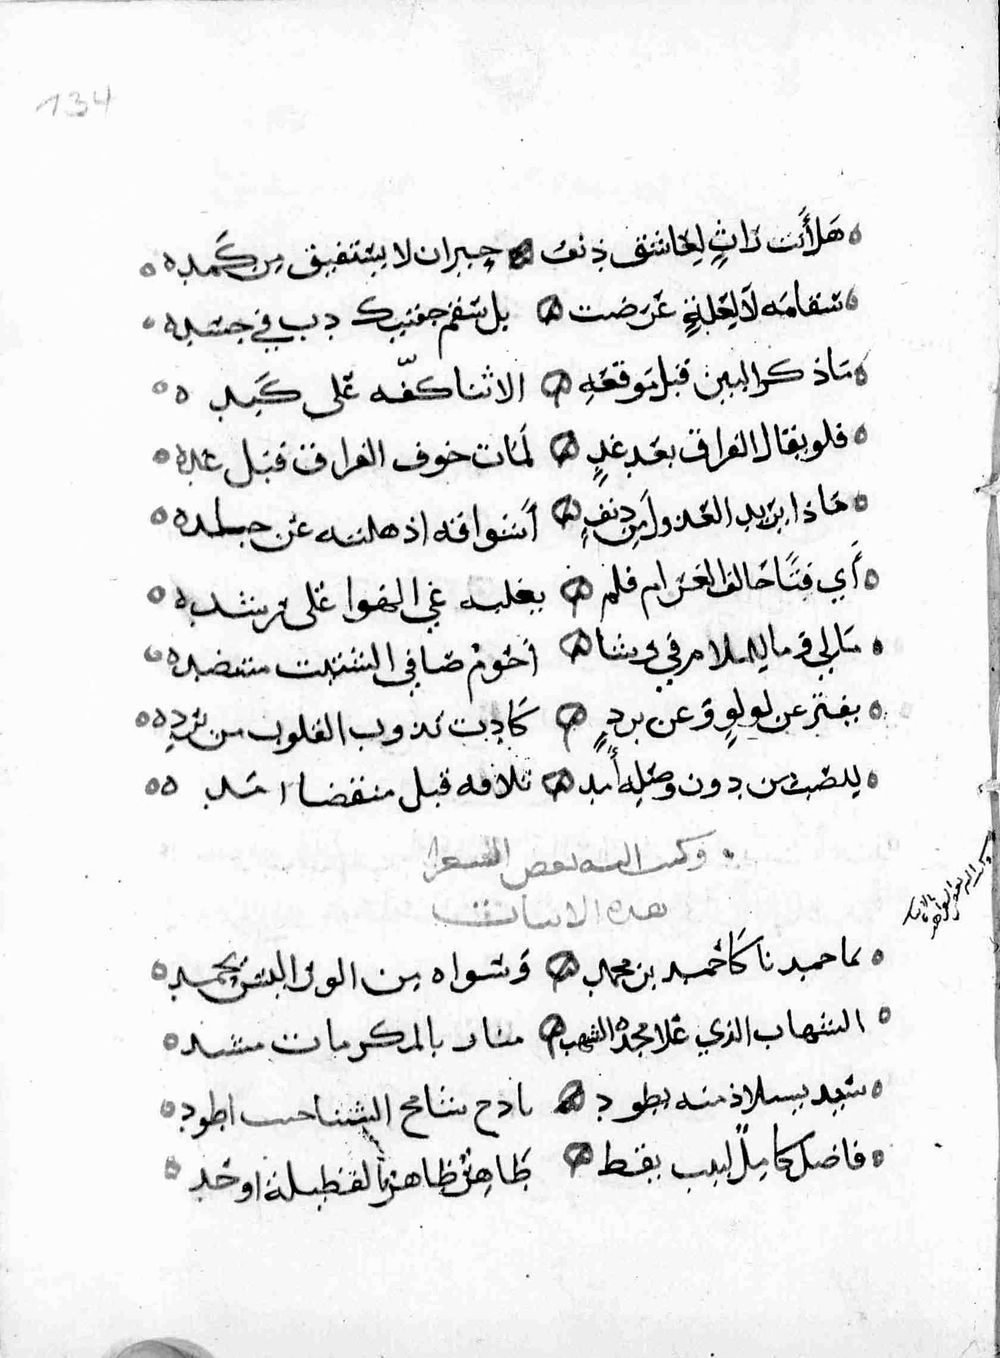 134
هل أنت راثٍ لعاشق دنف حيران لا يستفيق من كمده
سقامه لا لعلةٍ عرضت بل سقم جفنيك دب في جسده
ماذكر البين قبل موقعه الا ثنا كفّه على كبد
فلو يقال الفراق بعد غدٍ لمات خوف الفراق قبل غده
ماذا يريد العذول من دنفٍ أشواقه اذهلته عن جلده
أي فتًا حالف الغرام فلم يغلبه غي الهوا على رشده
مالي وما للملام في رشا أحوم صافي الشتيت منتضده
يفتر عن لولوٍ وعن بردٍ كادت تذوب القلوب من برده
ليت من دون وصله أمد تلافه قبل منقضا امد
وكتب اليه بعض الشعرا
هذه الابيات
ما حميد نا كأحمد بن محمد وسواه من الورى ليس يحمد
الشهاب الذي علا مجده الشهب منار بالمكرمات مشيد
سيد يستلاذ منه بطود باذخ شامخ الشناخيب اطود
فاضل كامل لبيب يقظ ظاهر طاهر القطيلة اوحد